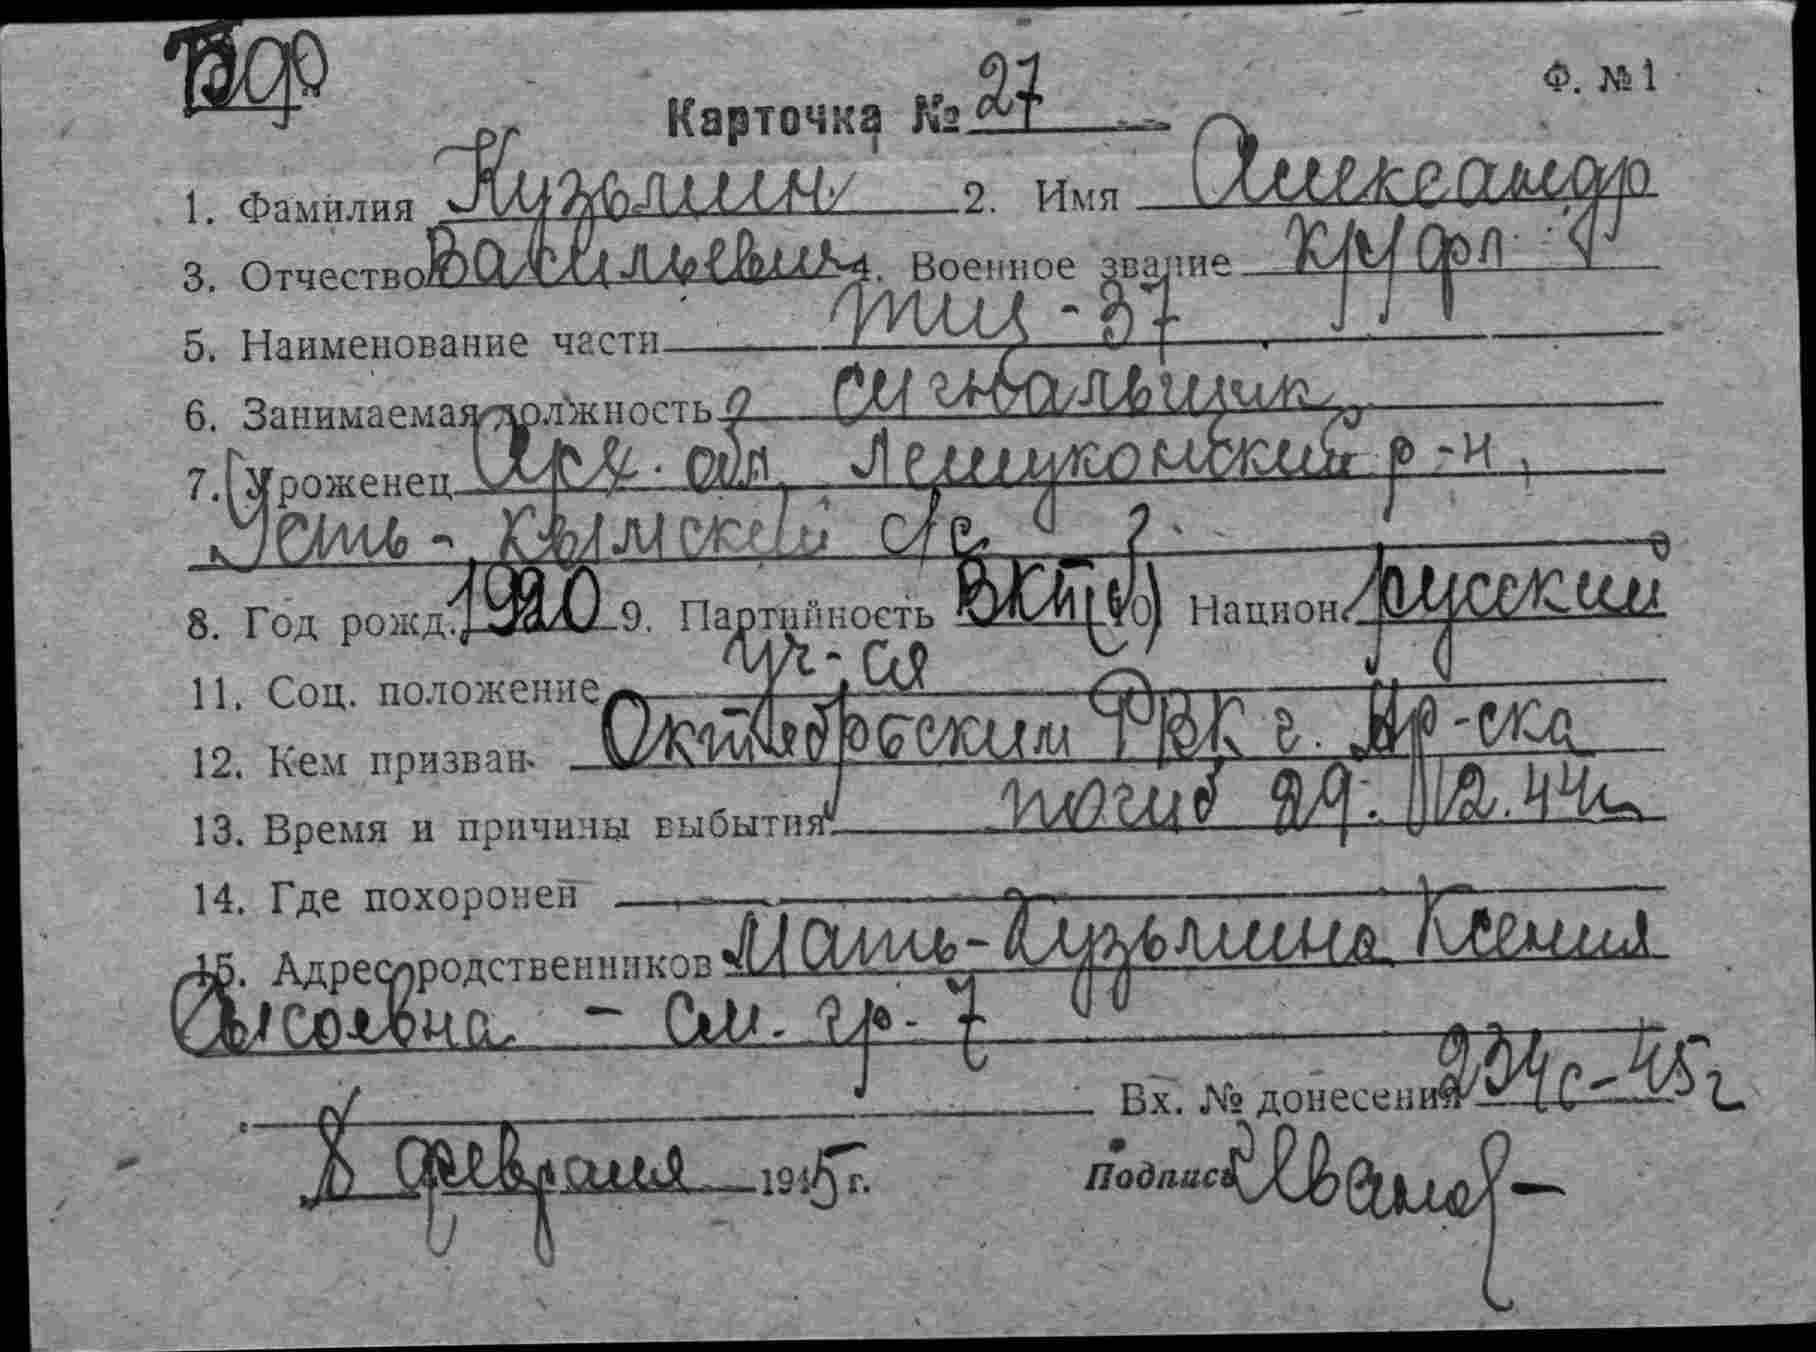 Ф. №1
Карточка № 27
1. Фамилия Кузьмин 2. Имя Александр
3. Отчество Васильевич 4. Военное звание кр/фл
5. Наименование части тщ-37
6. Занимаемая должность сигнальщик
7. Уроженец Арх. обл. Лешуконский р-н,
Усть-Кымский с/с
8. Год рожд. 1920 9. Партийность ВКП(б) Национ. русский
11. Соц. положение уч-ся
12. Кем призван Октябрьским РВК г. Ар-ска
13. Время и причины выбытия погиб 29.12.44г
14. Где похоронен —
15. Адрес родственников Мать-Кузьмина Ксения
Сысоевна - см. гр. 7
Вх. № донесения 234с-45г
8 февраля 1945 г. Подпись Иванов